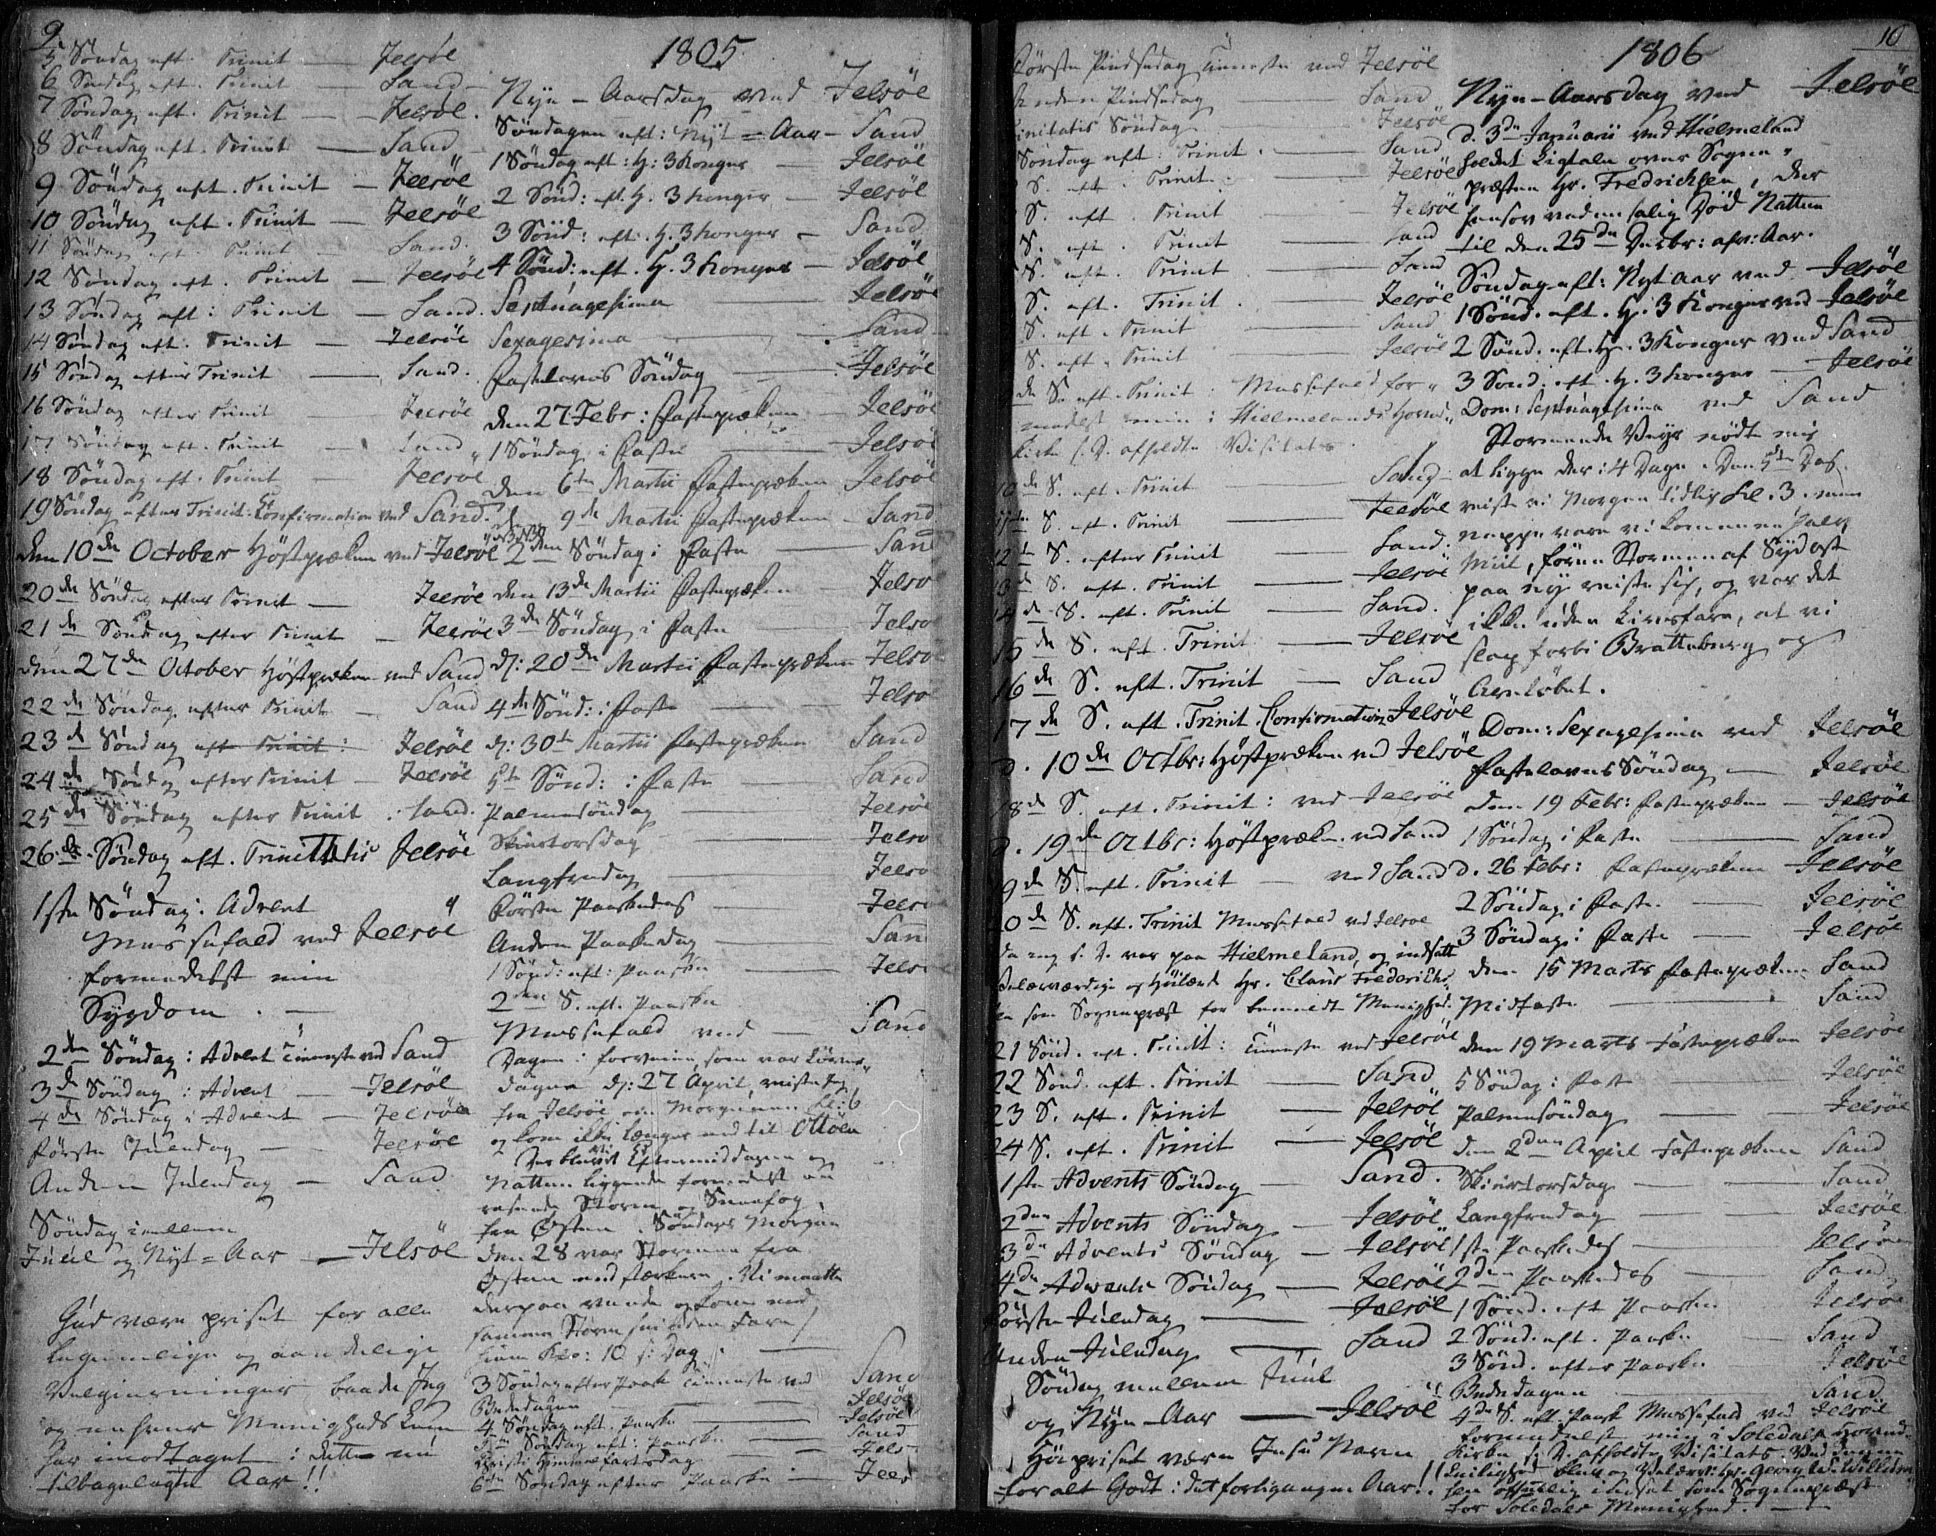 9.
5 Söndag eft. Trinit — Jelsöe
6 Söndag eft. Trinit — Sand
7 Söndag eft. Trinit — Jelsöe.
8 Söndag eft. Trinit — Sand
9 Söndag eft. Trinit — Jelsöe
10 Söndag eft. Trinit — Jelsöe
11 Söndag eft. Trinit — Sand.
12 Söndag eft. Trinit — Jelsöe
13 Söndag eft: Trinit — Sand.
14 Söndag eft: Trinit — Jelsöe
15 Söndag efter Trinit — Sand.
16 Söndag efter Trinit — Jelsöe
17 Söndag eft. Trinit — Sand
18 Söndag eft. Trinit — Jelsöe
19 Söndag efter Trinit: Confirmation ved Sand.
den 10de October Höstpræken ved Jelsöe
20de Söndag efter Trinit — Jelsöe
21de Söndag efter Trinit — Jelsöe
den 27de October Höstpræken ved Sand
22de Söndag efter Trinit — Sand
23de Söndag eft Trinit: Jelsöe
24de Söndag efter Trinit — Jelsöe
25de Söndag efter Trinit. Sand.
26de Söndag eft. Trinittatis Jelsöe
1ste Söndag i Advent
Messefald ved Jelsöe
formedelst min
Sygdom. —
2den Söndag i Advent tieneste ved Sand
3de Söndag i Advent — Jelsöe
4de Söndag i Advent — Jelsöe
Förste Juledag — Jelsöe
Anden Juledag — Sand
Söndag imellem
Juul og Nyt=Aar — Jelsöe
Gud være priset for alle
legemlige og aandelige
Velgierninger baade Jeg
og enhver Menigheds Lem
har imodtaget i dette nu
tilbagelagte Aar!!
1805.
Nye-Aarsdag ved Jelsöe
Söndagen eft: Nyt=Aar — Sand
1 Söndag eft: H: 3 Konger — Jelsöe
2 Sönd: eft. H. 3 Konger — Jelsöe
3 Sönd: eft: H. 3 Konger — Sand
4 Sönd: eft. H. 3 Konger — Jelsöe
Septuagesima — Jelsöe
Sexagesima — Sand
Fastelavns Söndag — Jelsöe
den 27 Febr: Fastepræken — Jelsöe
1 Söndag i Faste — Jelsöe
den 6te Martii Fastepræken Jelsöe
d. 9de Martii Fastepræken — Sand
2den Söndag i Faste — Sand
den 13de Martii Fastepræken — Jelsöe
3de Söndag i Faste — Jelsöe
d: 20de Martii Fastepræken Jelsöe
4de Sönd: i Faste — Jelsöe
d: 30te Martii Fastepræken Sand
5te Sönd: i Faste — Sand
Palmesöndag — Jelsöe
Skiertorsdag — Jelsöe
Langfredag — Jelsöe
Förste Paaskedag — Jelsöe
Anden Paaskedag — Sand
1 Sönd: eft: Paaske — Jelsöe
2den S. eft. Paaske
Messefald ved — Sand
Dagen i forveien, som var Löver=
dagen d: 27 April, reiste Jeg
fra Jelsöe om Morgenen Kl: 6
og kom ikke længer end til Ottöen
Der blev vi Eftermiddagen og
Natten liggende formedelst en
rasende Storm og Sneefog
fra Østen. Söndags Morgen
den 28 var Stormen fra
Østen end stærkere. Vi maatte
derpaa vende og kom med
samme Storm (ei uden Fare)
hiem Klo: 10 s: Dag. —
3 Söndag efter Paask tieneste ved Sand
Bededagen — Jelsöe
4 Söndag eft. Paaske — Jelsöe
5te Söndag eft: Paaske — Sand
Christi Himmelfartsdag — Jels
6te Söndag efter Paaske — Jels
10
Förste Pindsedag tieneste ved Jelsöe
Anden Pindsedag — Sand
Trinitatis Söndag — Jelsöe
Söndag eft: Trinit. — Sand
S. eft. Trinit. — Jelsöe
S. eft. Trinit — Jelsöe
S. eft. Trinit — Sand
S. eft. Trinit — Sand
S. eft. Trinit — Jelsöe
S. eft. Trinit — Sand
S. eft. Trinit — Jelsöe
de S. eft. Trinit Messefald for=
medelst min i Hielmelands Hoved=
kirke s. D. afholdte Visitats
10de S. eft. Trinit — Sand
S. eft. Trinit — Jelsöe
12te S. efter Trinit — Sand.
13de S. eft. Trinit — Jelsöe
14de S. eft. Trinit — Sand.
15de S. eft. Trinit — Jelsöe
16de S. eft. Trinit — Sand
17de S. eft. Trinit. Confirmation Jelsöe
D. 10de Octbr: Höstpræken ved Jelsöe
18de S. eft. Trinit: ved Jelsöe
D. 19de Octbr: Höstpræken ved Sand
19de S. eft. Trinit — ved Sand
20de S. eft. Trinit Messefald ved Jelsöe
da jeg s. D. var paa Hielmeland, og indsatte
Velærværdige og Höilærde Hr. Claus Frederichs=
en som Sognepræst for bemeldt Menighed.
21 Sönd. eft. Trinit: tieneste ved Jelsöe
22 Sönd. eft. Trinit — Sand
23 S. eft. Trinit — Jelsöe
24 S. eft. Trinit — Jelsöe
1ste Advents Söndag — Sand.
2den Advents Söndag — Jelsöe
3de Advents Söndag — Jelsöe
4de Advents Söndag — Jelsöe
Förste Juledag — Jelsöe
Anden Juledag — Sand
Söndag mellem Juul
og Nye-Aar — Jelsöe
Höipriset være Jesu Navn
for alt Godt i det forligangne Aar!!
1806
Nye-Aarsdag ved Jelsöe
d. 3de Januarii ved Hielmeland
holdet Ligtale over Sogne=
præsten Hr. Fredrichsen, der
hensov ved en salig Död Natten
til den 25de Decbr: afv: Aar.
Söndag eft: Nyt Aar ved Jelsöe
1 Sönd. eft. H. 3 Konger ved Jelsöe
2 Sönd. eft. H. 3 Konger ved Sand
3 Sönd. eft. H. 3 Konger — Jelsöe
Dom: Septuagesima ved Sand
Stormende Veyr nödte mig
at ligge der i 4 Dage. Den 5te Dag
reiste vi Morgen tidlig Kl. 3. men
neppe vare vi kommen halv
Miil, förend Stormen af Sydost
paa ny reiste sig, og var det
ikke uden Livsfare, at vi
slap forbi Bratteberg og
Dom: Sexagesima ved Jelsöe
Fastelavns Söndag — Jelsöe
den 19 Febr: Fastepræken — Jelsöe
1 Söndag i Faste — Sand
d. 26 Febr: Fastepræken Jelsöe
2 Söndag i Faste. — Jelsöe
3 Söndag i Faste — Jelsöe
den 15 Marts Fastepræken Sand
Midfaste — Sand
den 19 Marts Fastepræken Jelsöe
5 Söndag i Fast — Jelsöe
Palmesöndag — Jelsöe
den 2den April Fastepræken Sand
Skiertorsdag — Sand
Langfredag — Jelsöe
1ste Paaskedag — Jelsöe
2den Paaskedag — Sand
1 Sönd. eft Paaske — Jelsöe
2 Sönd. eft. Paaske — Sand
3 Sönd. efter Paaske — Jelsöe
Bededagen — Sand.
4de S. eft. Paask Messefald ved Jelsöe
formedelst min i Soledals Hoved=
Kirke s. D. afholdte Visitats. Ved samme
Leilighed blev og Velærv: Hr. Georg Lud: Willum
sen offentlig indsat som Sognepræst
for Soledals Menighed. —